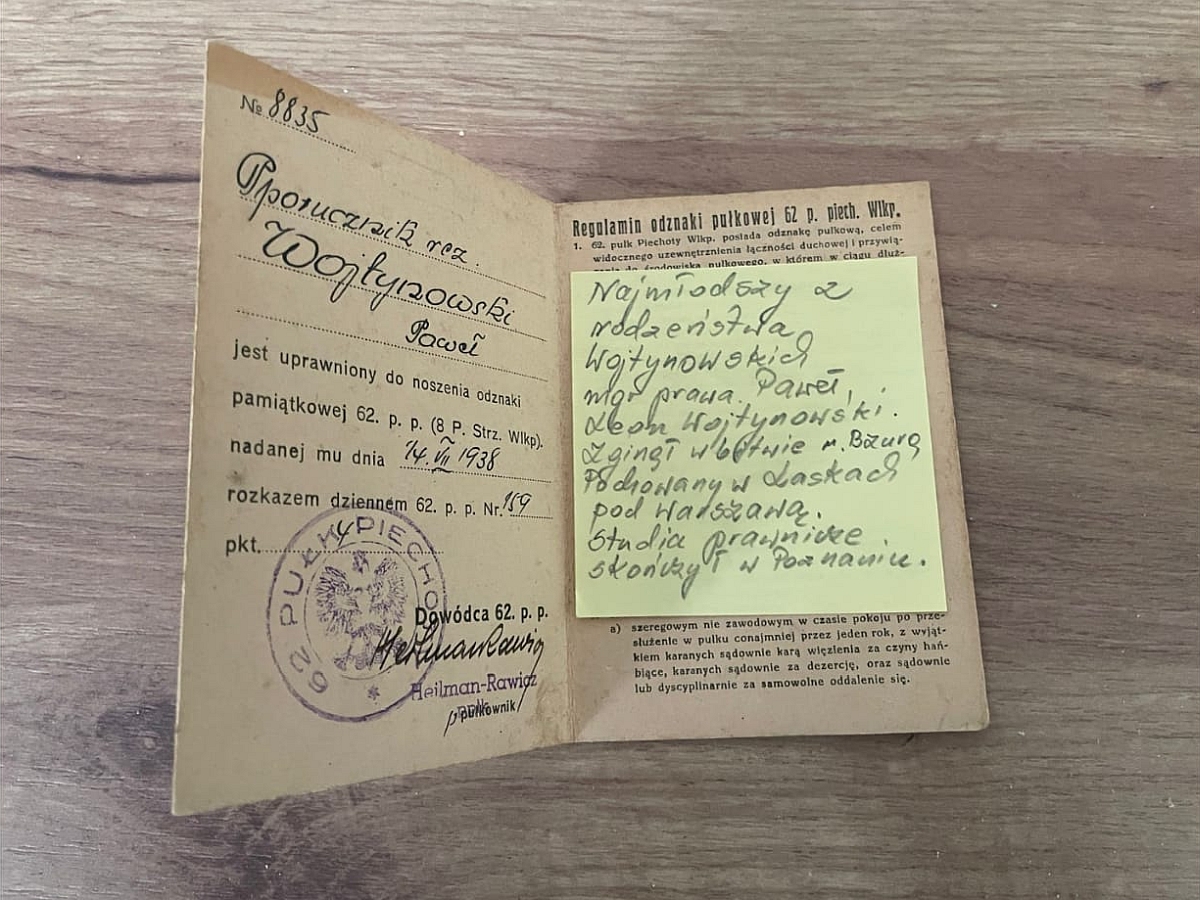 № 8835
Pporucznik rez.
Wojtynowski
Paweł
jest uprawniony do noszenia odznaki
pamiątkowej 62. p. p. (8 P. Strz. Wlkp).
nadanej mu dnia 14. VII 1938
rozkazem dziennem 62. p. p. Nr. 159
pkt. 4
62 PUŁK PIECHO
Dowódca 62. p. p.
Heilman-Rawicz
Heilman-Rawicz
ppłk.
pułkownik
Regulamin odznaki pułkowej 62 p. piech. Wlkp.
1. 62. pułk Piechoty Wlkp. posiada odznakę pułkową, celem
widocznego uzewnętrznienia łączności duchowej i przywią-
zania do środowiska pułkowego, w którem w ciągu dłuż-
Najmłodszy z
rodzeństwa
Wojtynowskich
mgr prawa. Paweł,
Leon Wojtynowski.
Zginął w bitwie n. Bzurą
Pochowany w Laskach
pod Warszawą.
Studia prawnicze
skończył w Poznaniu.
a) szeregowym nie zawodowym w czasie pokoju po prze-
służeniu w pułku conajmniej przez jeden rok, z wyjąt-
kiem karanych sądownie karą więzienia za czyny hań-
biące, karanych sądownie za dezercję, oraz sądownie
lub dyscyplinarnie za samowolne oddalenie się.